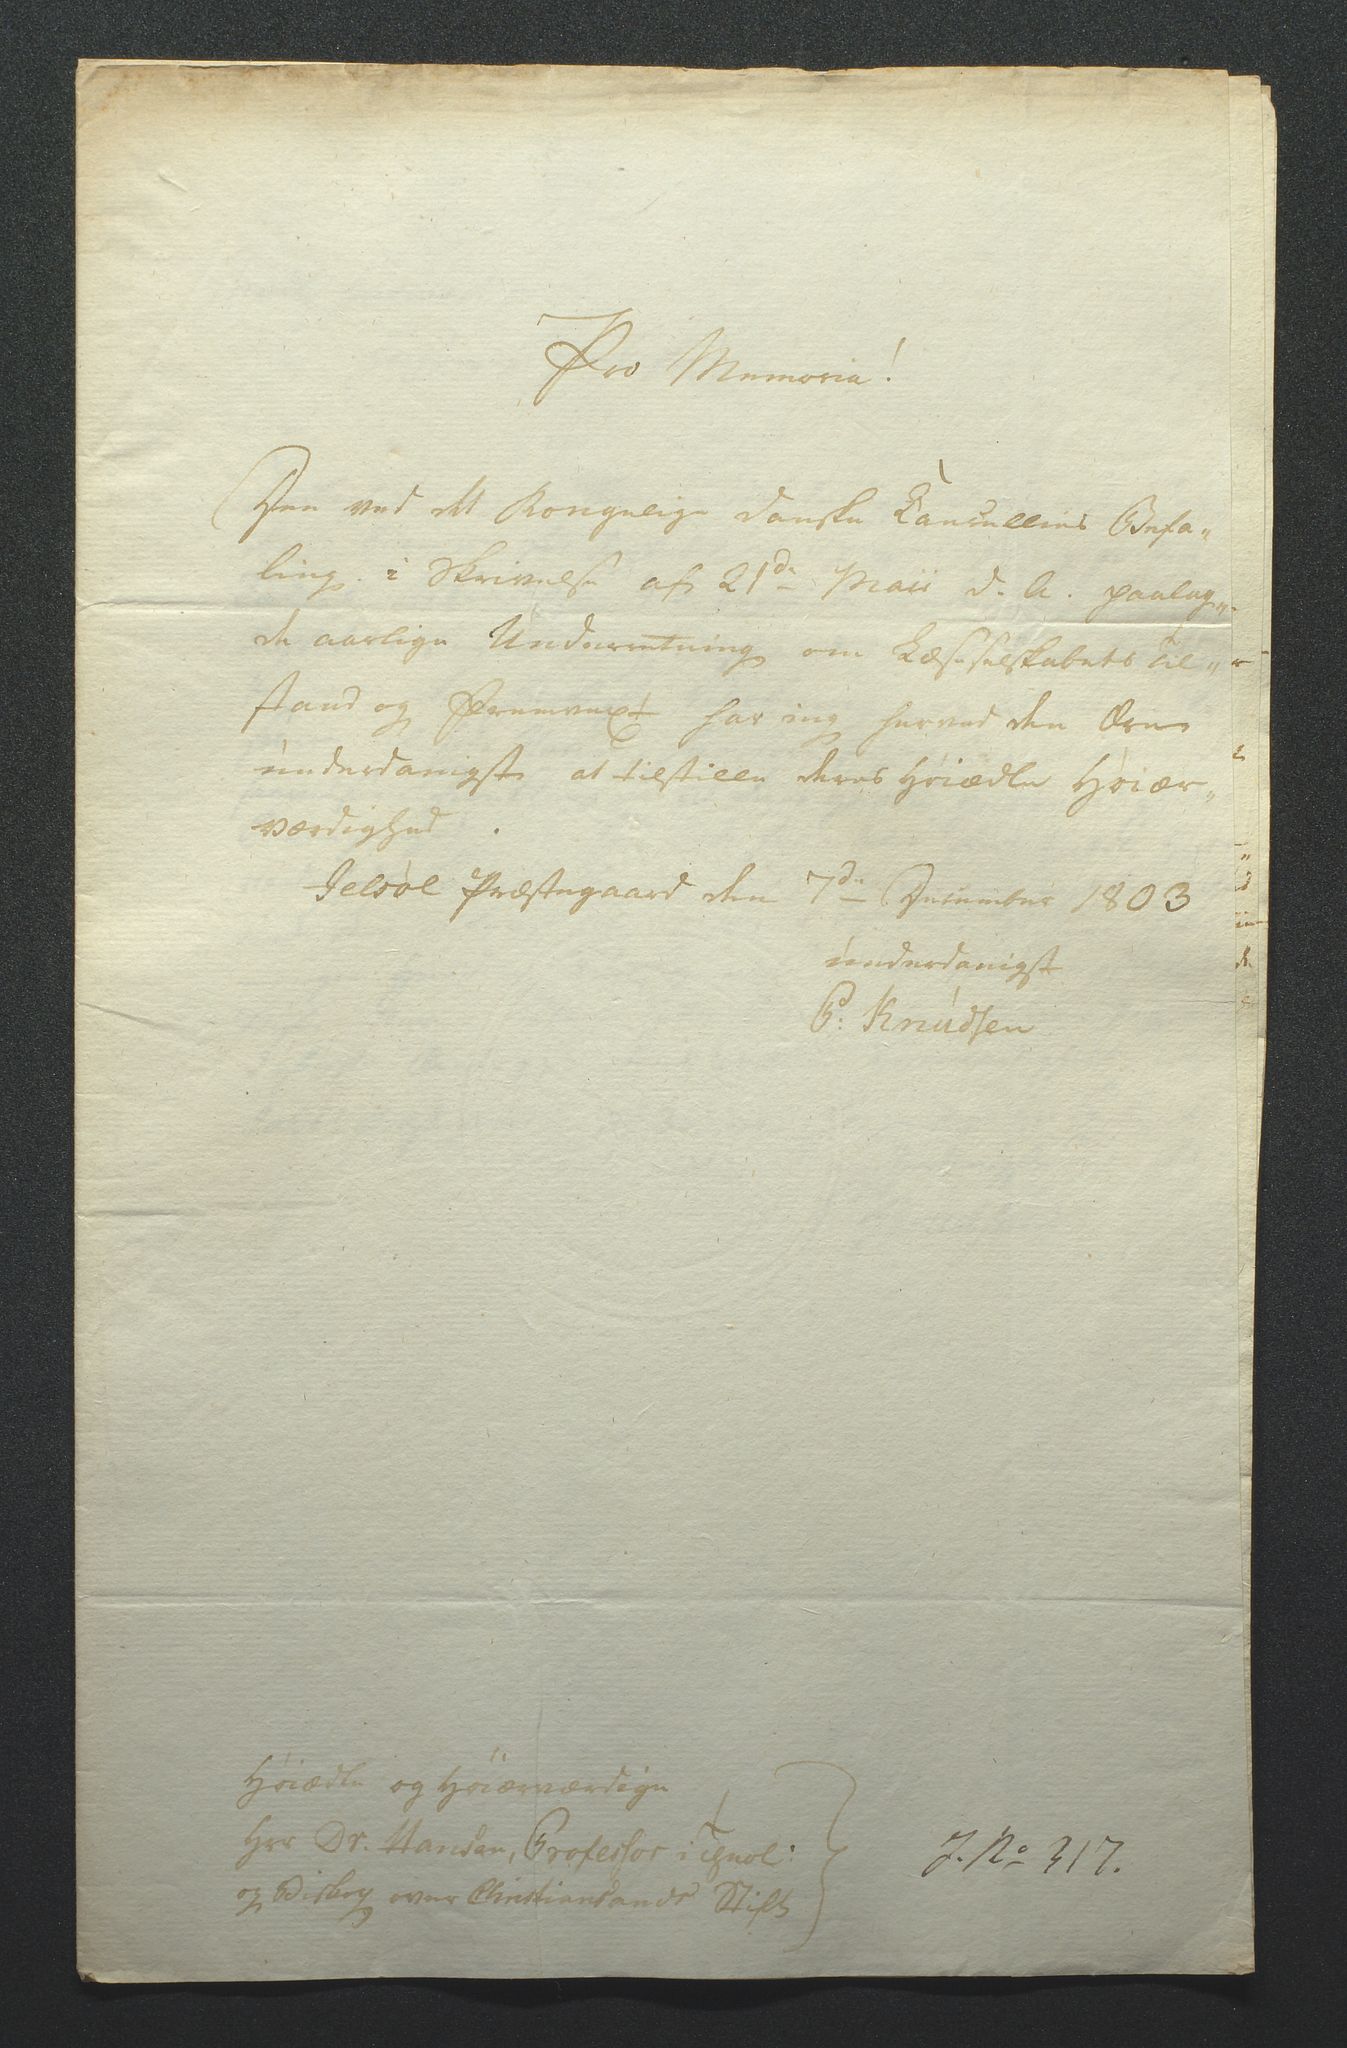 Pro Memoria!
Den ved det Kongelige danske Cancellies Befa„
ling i Skrivelse af 21de Maii d. A. paalag„
de aarlige Underretning om Læseselskabets Til„
stand og Fremvext har jeg herved den Ære
underdanigst at tilstille deres Høiædle Høiær„
værdighed.
Jelsøe Præstegaard den 7de December 1803
underdanigst
P: Knudsen
Høiædle og Høiærværdige
Herr Dr. Hansen, Professor i Theol:
og Biskop over Christiansands Stift
J. No 317.